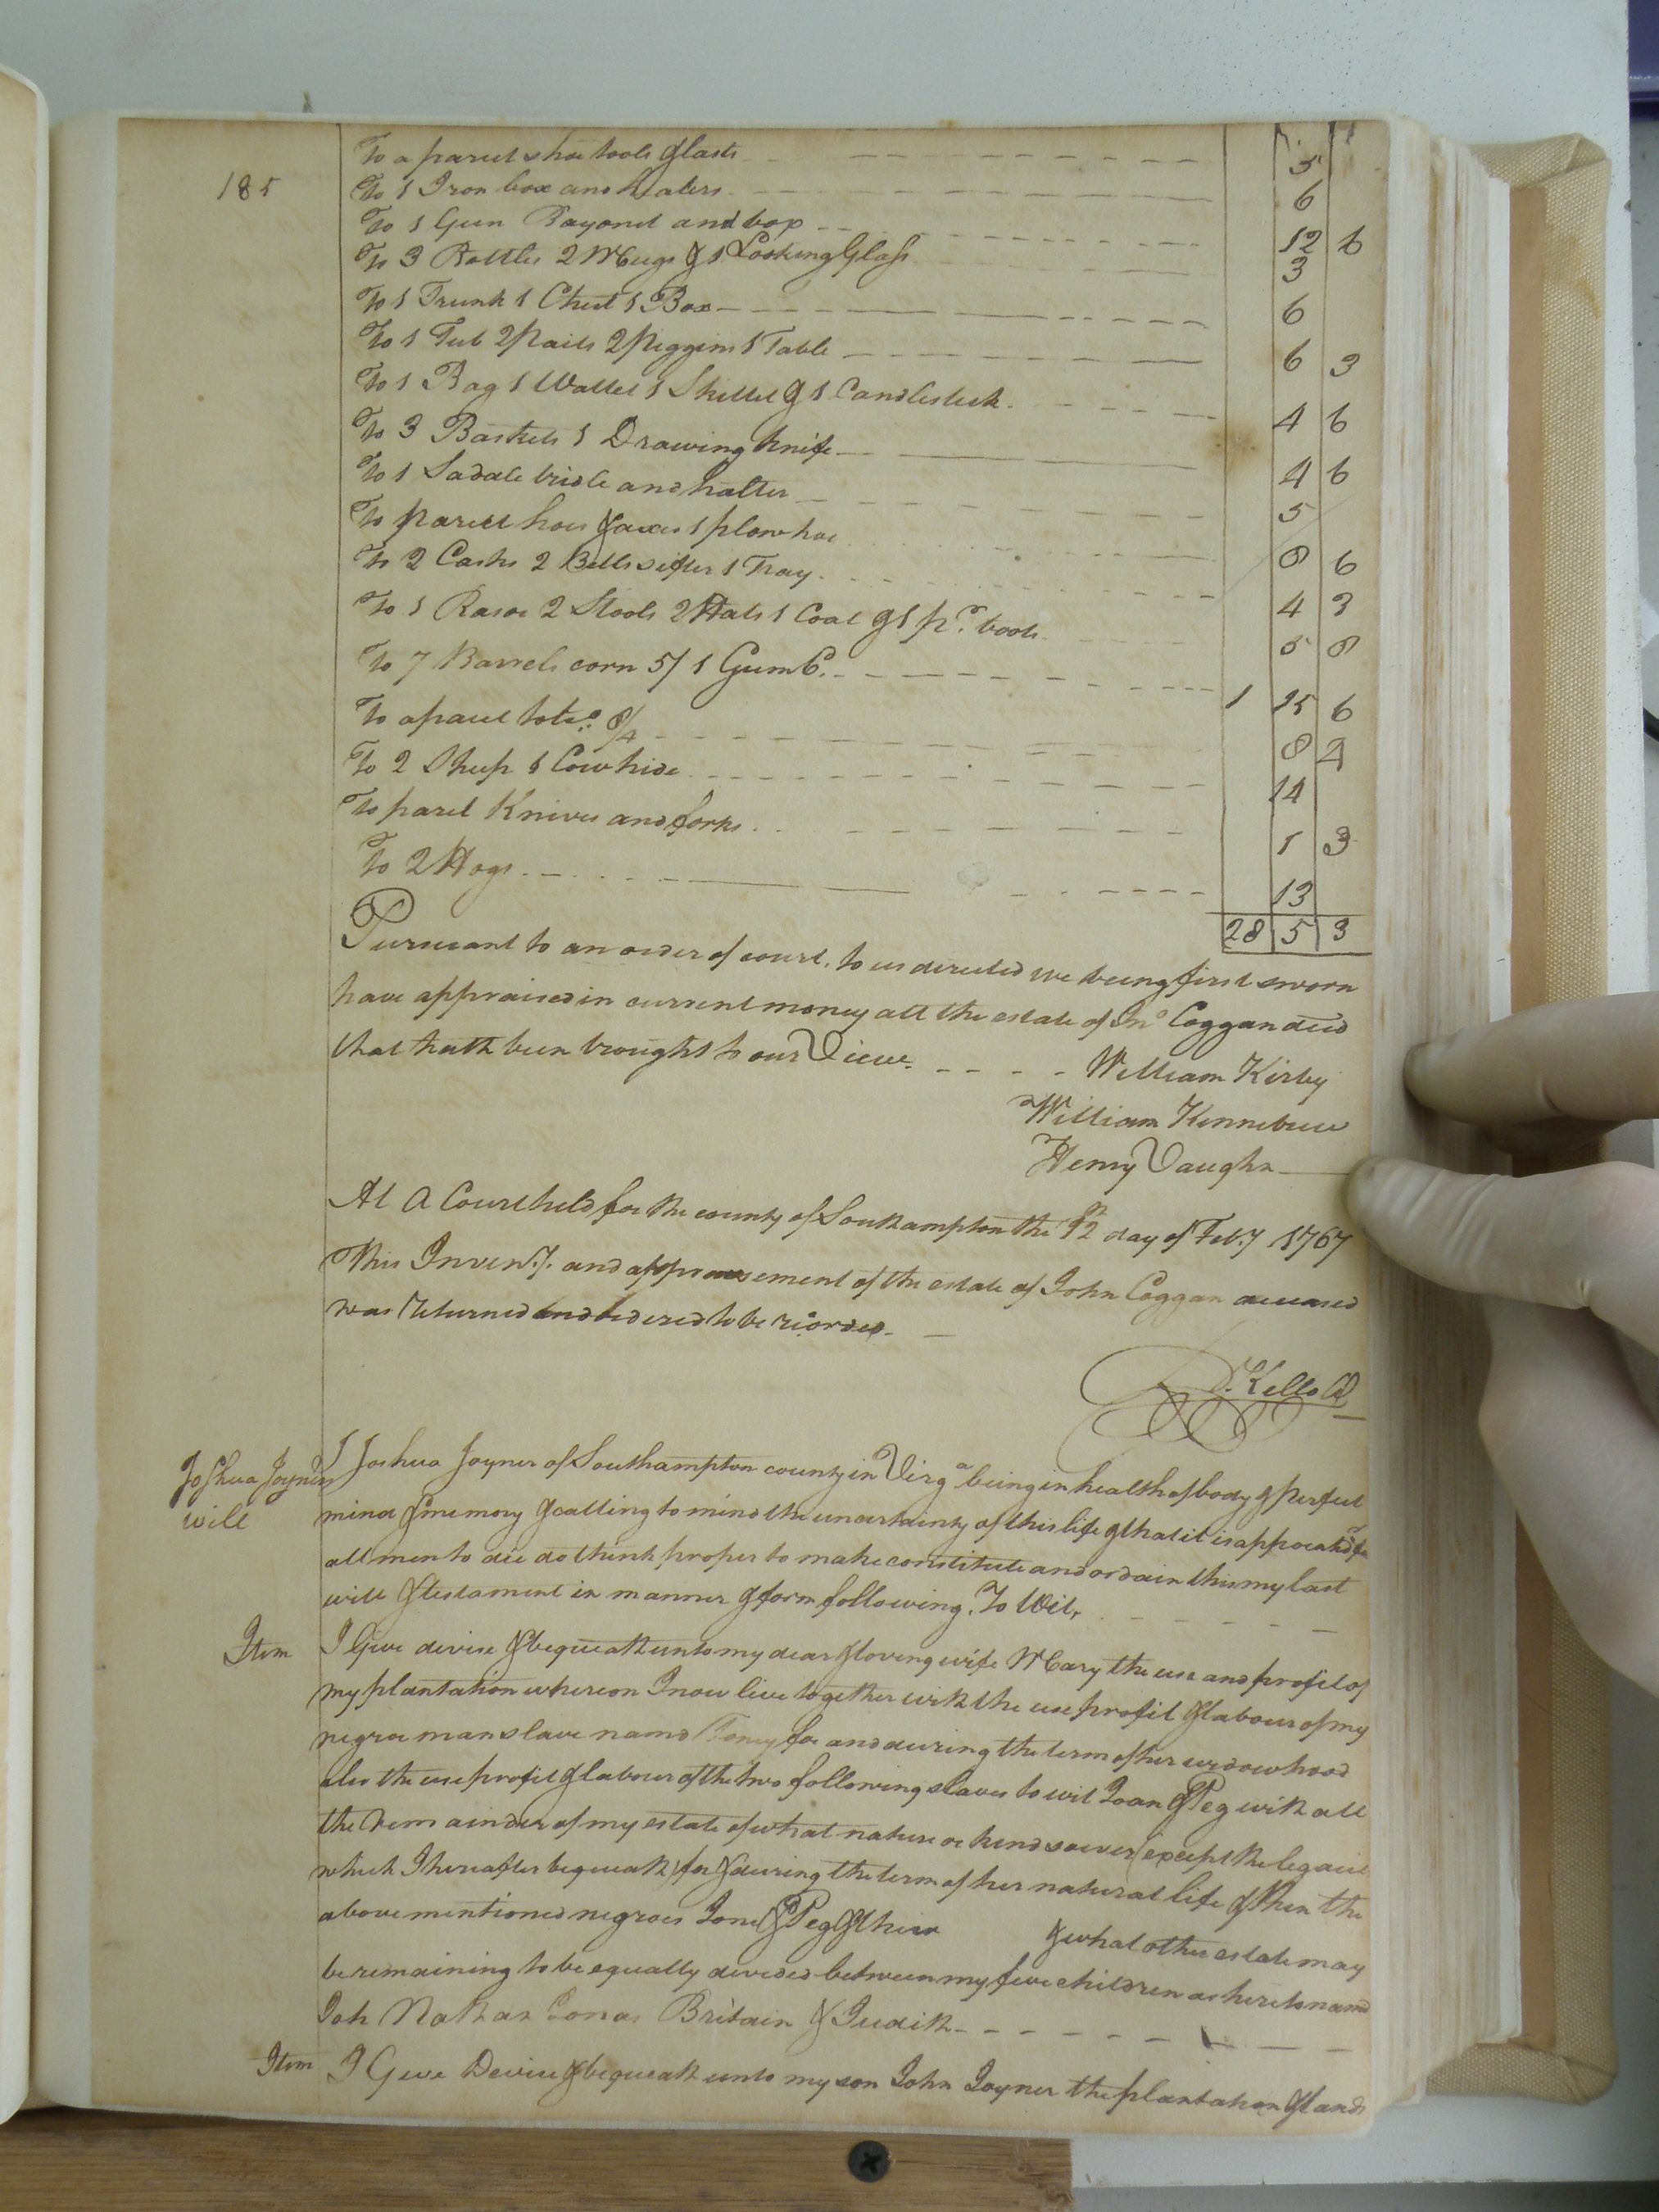 185
To a parcel shoe tools & lasts 5
To 1 Iron box and heaters 6
To 1 Gun Bayonet and box 12 6
To 3 Bottles 2 Mugs & 1 Looking Glass 3
To 1 Trunk 1 Chest 1 Box 6
To 1 Tub 2 Pails 2 Piggins 1 Table 6 3
To 1 Bag 1 Wallet 1 Skillet & 1 Candlestick 4 6
To 3 Baskets 1 Drawing knife 4 6
To 1 Saddle bridle and halter 5
To Parcel hoes & axes 1 plow hoe 8 6
To 2 Casks 2 Bells sifter 1 Tray 4 3
To 1 Rasor 2 Stools 2 Hats 1 Coat & 1 pr. boots 5 8
To 7 Barrels corn 5/ 1 Gum 6. 1 15 6
To a parcel 8/4 8 4
To 2 Sheep 1 Cowhide 14
To parcel Knives and forks 1 3
To 2 Hogs 13
28 5 3
Pursuant to an order of court, to us directed we being first sworn
have appraised in current money all the estate of Jno Coggan decd
that hath been brought to our View.
William Kirby
William Kennebrew
Henry Vaughn
At A Court held for the county of Southampton the 12th day of Feby 1767
This Inventy. and appraisement of the estate of John Coggan deceased
was Returned and ordered to be recorded.
R. Kello Cl
Joshua Joyners
will
I Joshua Joyner of Southampton county in Virga being in health of body & perfect
mind & memory & calling to mind the uncertainty of this life & that it is appointed for
all men to die do think proper to make constitute and ordain this my last
will & testament in manner & form following. To Wit,
Item I Give devise & bequeath unto my dear & loving wife Mary the use and profit of
my plantation whereon I now live together with the use profit & labour of my
negroe man slave namd Toney for and during the term of her widowhood
also the use profit & labour of the two following slaves to wit Joan & Peg with all
the Remainder of my estate of what nature or kind soever (except the legacies
which I hereafter bequeath) for & during the term of her natural life & then the
above mentioned negroes Jone & Peg & their & what other estate may
be remaining to be equally devided between my five children as hereto namd
Job Nathan Jonas Britain & Judith
Item I Give Devise & bequeath unto my son John Joyner the plantation & lands